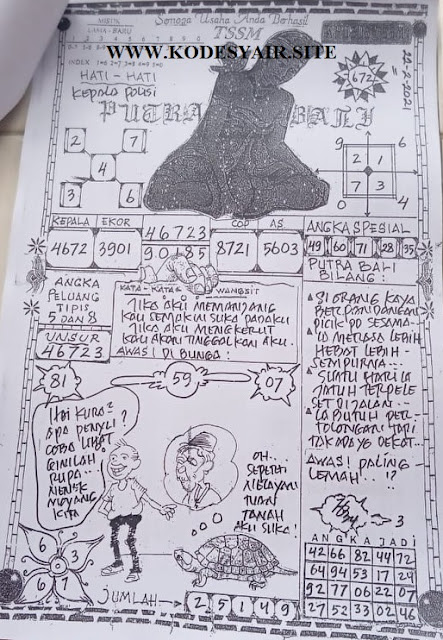 Semoga Usaha Anda Berhasil
MISTIK
LAMA - BARU
TSSM
WWW.KODESYAIR.SITE
INDEX 1=6 2=7 3=8 4=9 5=0
HATI - HATI
KEPALA POLISI
1672
22-2-2021
PUTRA BALI
2 7
4
3 6
9 6
2 1
7 3
0 4
KEPALA EKOR
4672 3901
46723
90185
COP AS
8721 5603
ANGKA SPESIAL
49 60 71 28 35
ANGKA
PELUANG
TIPIS
5 DAN 8
UNSUR
46723
KATA - KATA WANGSIT
JIKA AKU MEMANJANG
KAU SEMAKIN SUKA PADAKU
JIKA AKU MENGKERUT
KAU AKAN TINGGALKAN AKU.
AWAS! DI BUNGA:
PUTRA BALI
BILANG:
SI ORANG KAYA
BERPANDANGAN
PICIK PD SESAMA
IA MERASA LEBIH
HEBAT LEBIH
SEMPURNA
SUATU HARI IA
JATUH TERPELE
SET DI JALAN
IA BUTUH PER
TOLONGAN TAPI
TAK ADA YG DEKAT
AWAS! PALING
LEMAH...!?
81
59
07
HAI KURA2
APA PENYU?
COBA LIHAT
INILAH
RUPA
NENEK
MOYANG
KITA
OH...
SEPERTI
MELAYANI
TUAN
TANAH
AKU SUKA!
6 3
6 7
JUMLAH
25149
3
ANGKA JADI
42 66 82 44 72
64 94 53 17 24
92 77 06 22 07
27 52 33 02 46